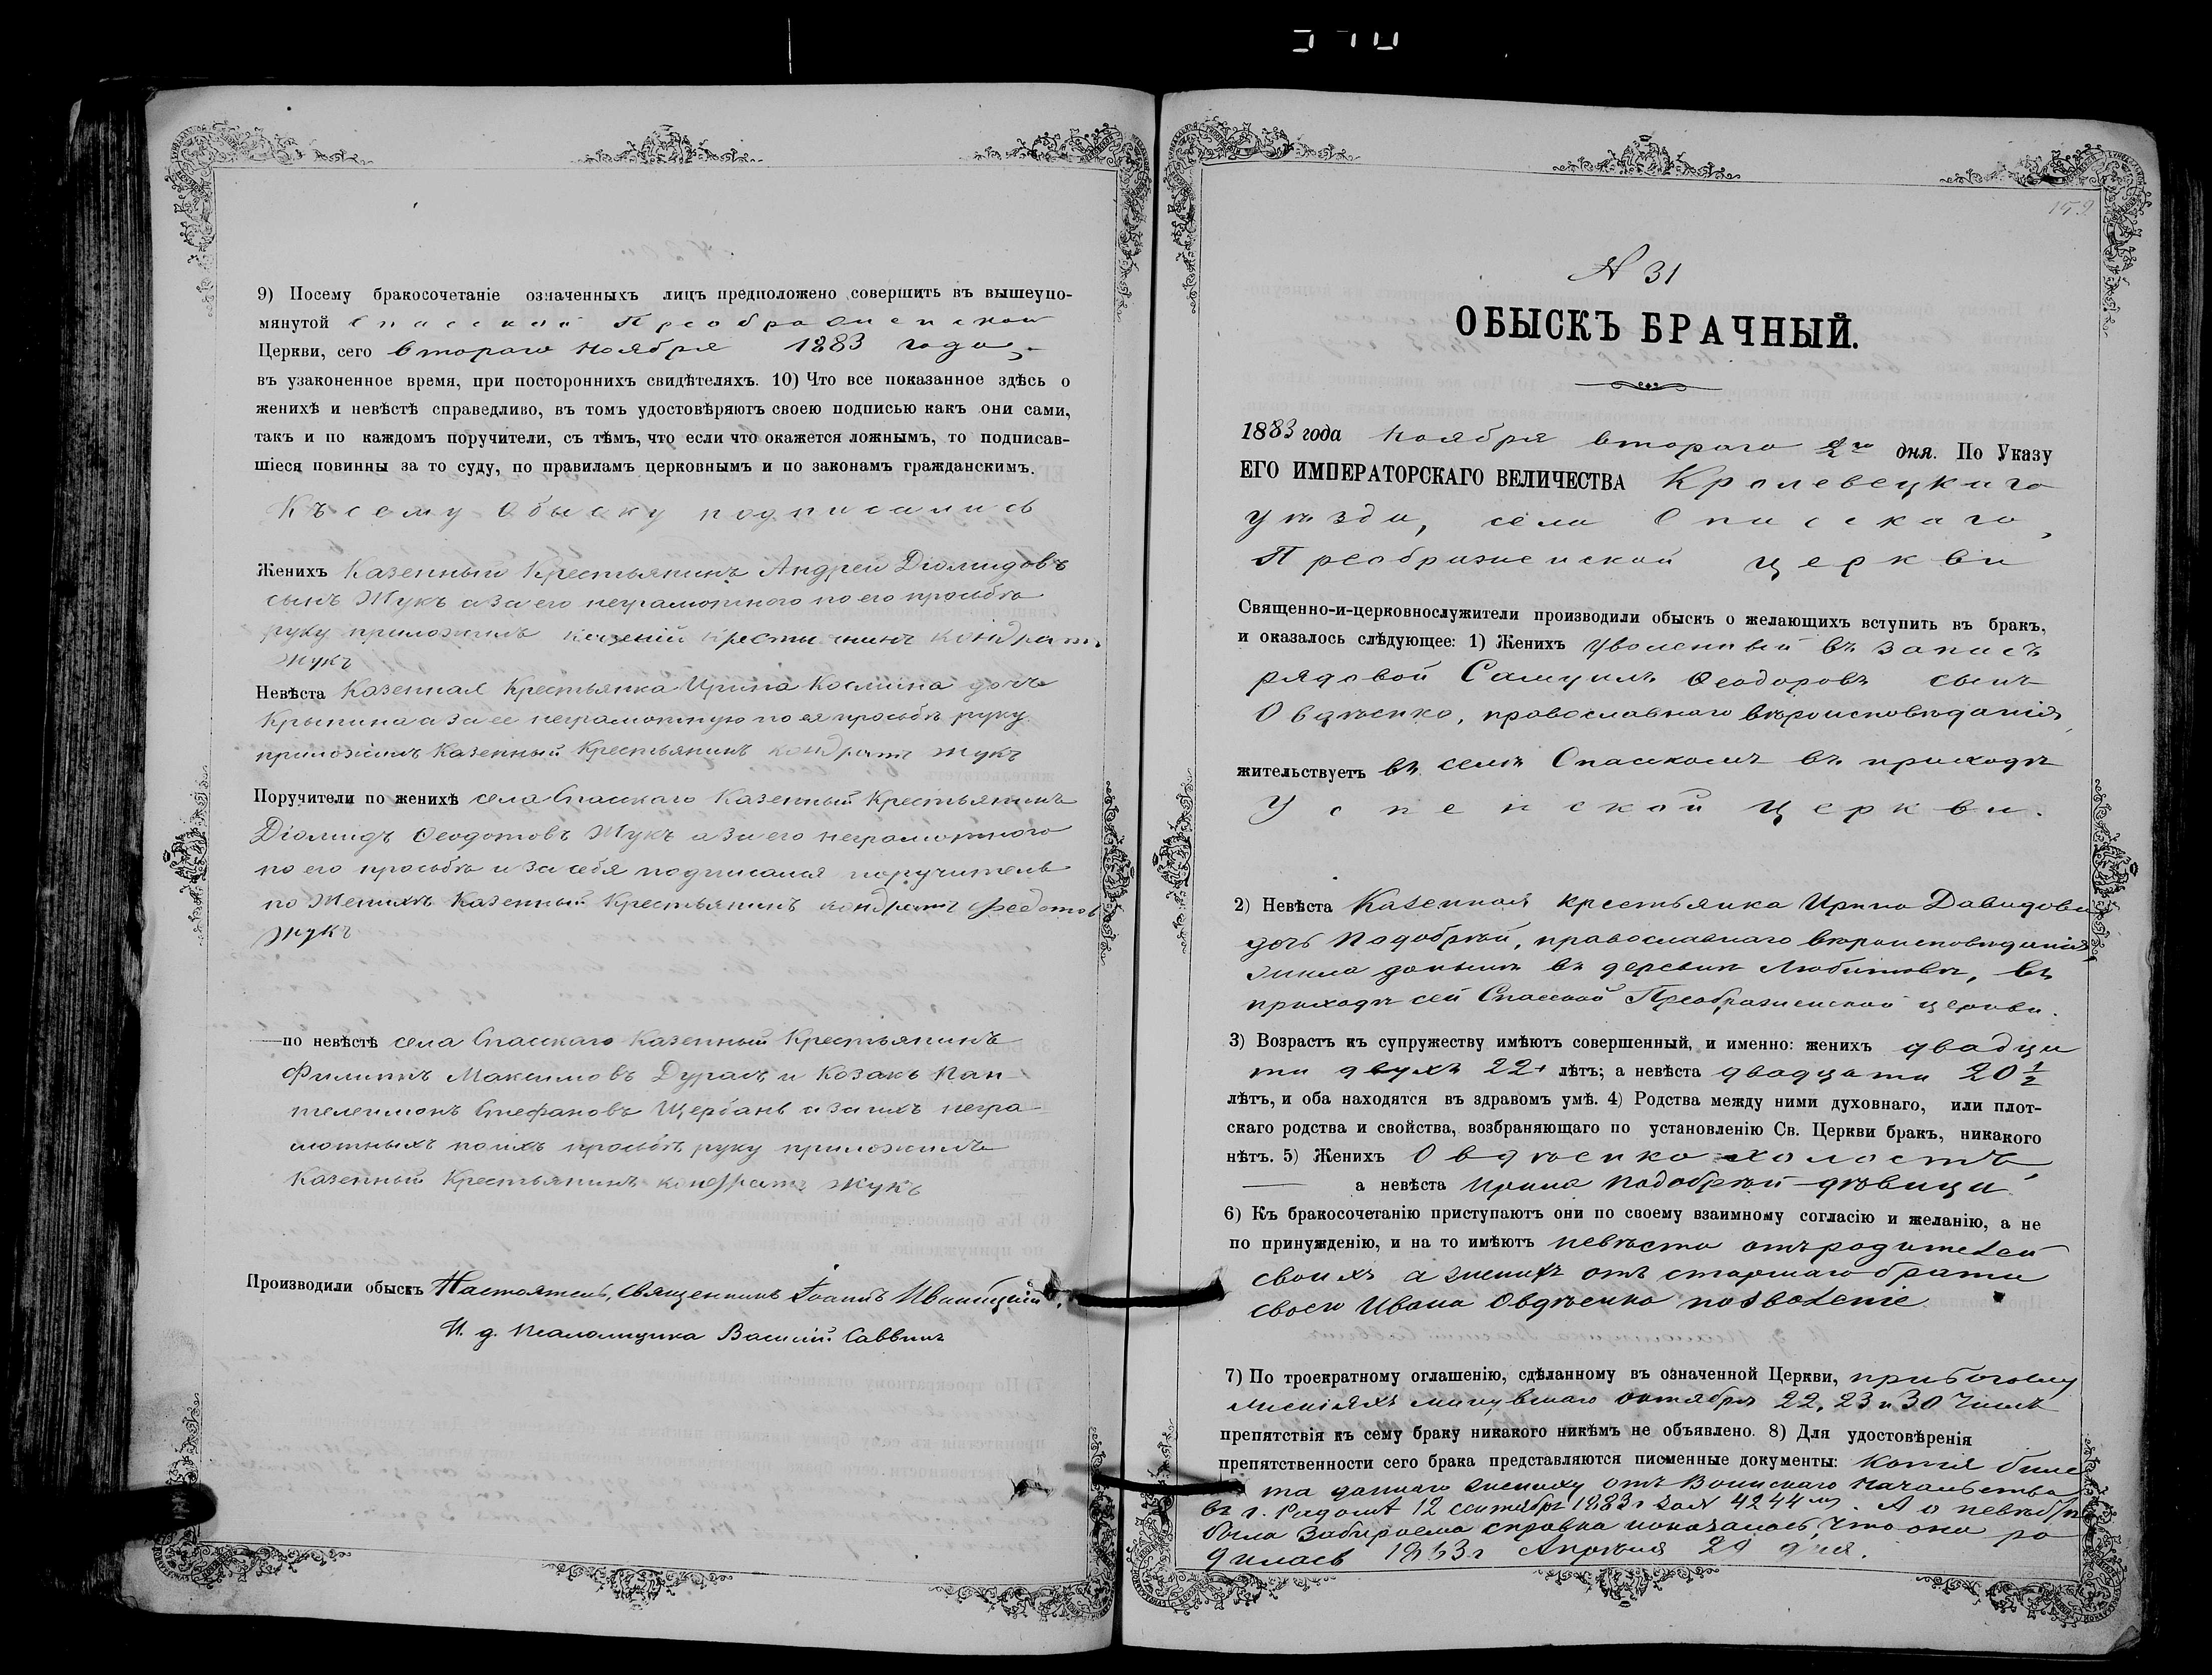 9) Посему бракосочетаніе означенныхъ лицъ предположено совершить въ вышеупо-
мянутой Спасской Преображенской
Церкви, сего втораго ноября 1883 года
въ узаконенное время, при постороннихъ свидѣтеляхъ. 10) Что все показанное здѣсь о
женихѣ и невѣстѣ справедливо, въ томъ удостовѣряютъ своею подписью какъ они сами,
такъ и по каждомъ поручители, съ тѣмъ, что если что окажется ложнымъ, то подписав-
шіеся повинны за то суду, по правиламъ церковнымъ и по законамъ гражданскимъ.
Къ сему обыску подписались
Женихъ Казенный Крестьянинъ Андрей Діомидовъ
сынъ Жукъ а за его неграмотного по его прозьбѣ
руку приложилъ казеній крестьянинъ кондратъ
жукъ
Невѣста Казенная Крестьянка Ирина Косьмина дочь
Крыпина а за ее неграмотную по ея прозьбѣ руку
приложилъ Казенный Крестьянинъ кондратъ жукъ
Поручители по женихѣ села Спасскаго Казенный Крестьянинъ
Діомидъ Ѳеодотовъ Жукъ а за его неграмотного
по его прозьбѣ и за себя подписался поручитель
по Женихѣ Казенный Крестьянинъ кондратъ федотовъ
жукъ
—по невѣстѣ села Спасскаго Казенный Крестьянинъ
Филиппъ Максимовъ и Козакъ Пан-
телеимонъ Стефановъ Щербань а за ихъ негра-
мотныхъ по ихъ прозьбѣ руку приложилъ
Казенный Крестьянинъ кондратъ жукъ
Производили обыскъ Настоятель, священникъ Іоаннъ Иваницкій.
И. д. псаломщика Василій Саввинъ
152
N 31
ОБЫСКЪ БРАЧНЫЙ.
1883 года ноября втораго 2го дня. По Указу
ЕГО ИМПЕРАТОРСКАГО ВЕЛИЧЕСТВА Кролевецкаго
уѣзда, села Спасскаго,
Преображенской церкви
Священно-и-церковнослужители производили обыскъ о желающихъ вступить въ бракъ,
и оказалось слѣдующее: 1) Женихъ Уволенный въ запасъ
рядовой Самуилъ Ѳеодоровъ сынъ
Овдѣенко, православнаго вѣроисповѣданія,
жительствуетъ въ селѣ Спасскомъ въ приходѣ
Успенской Церкви.
2) Невѣста Казенная крестьянка Ирина Давидова
дочь Подобрѣй, православнаго вѣроисповѣданія,
жила доныне въ деревни Любитовѣ, въ
приходѣ сей Спасской Преображенской церкви.
3) Возрастъ къ супружеству имѣютъ совершенный, и именно: женихъ двадца
ти двухъ 22 лѣтъ; а невѣста двадцати 20 ½
лѣтъ, и оба находятся въ здравомъ умѣ. 4) Родства между ними духовнаго, или плот-
скаго родства и свойства, возбраняющаго по установленію Св. Церкви бракъ, никакого
нѣтъ. 5) Женихъ Овдѣенко холостъ
а невѣста Ирина Подобрѣй дѣвица
6) Къ бракосочетанію приступаютъ они по своему взаимному согласію и желанію, а не
по принужденію, и на то имѣютъ невѣста отъ родителей
своихъ а женихъ отъ старшаго брата
своего Ивана Овдѣенка позволеніе
7) По троекратному оглашенію, сдѣланному въ означенной Церкви, при богослу
женіяхъ минувшаго октября 22, 23 и 30 чиселъ
препятствія къ сему браку никакого никѣмъ не объявлено. 8) Для удостовѣренія
препятственности сего брака представляются писменные документы: копія биле
та даннаго жениху отъ Воинскаго начальства
въ г. Радомѣ 12 сентября 1883 г за N 4244. А о невѣстѣ
была забираема справка показалось, что она ро
дилась 1863 г Апрѣля 29 дня.